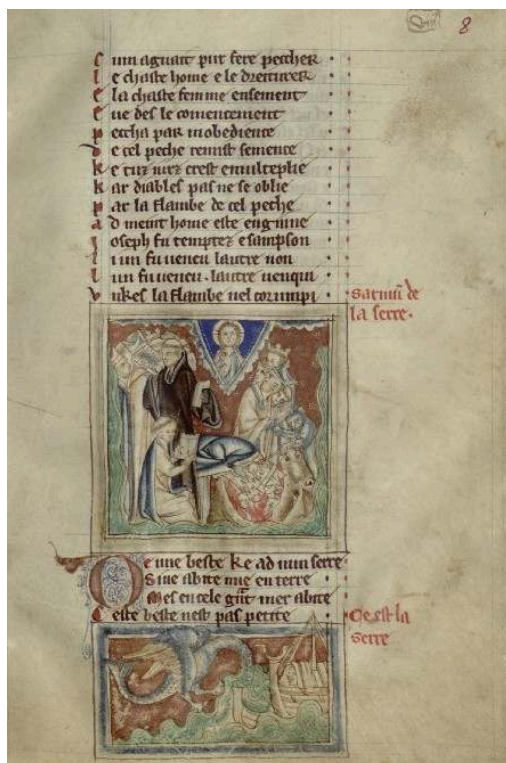 8
Cum aguait put fere peccher
Le chaste home e le dreiturer
E la chaste femme ensement
Eve des le comencement
Peccha par inobedience
De cel peche remist semence
Ke tuz iurz crest e multeplie
Kar diables pas ne se oblie
Par la flambe de cel peche
Ad meint home este enginne
Joseph fu temptez e sampson
Li un fu vencu lautre non
Li un fu vencu . lautre venqui
Unkes la flambe nel corrumpi
la serre.
De une beste ke ad nun serre
Si ne abite mie en terre
Mes en cele grant mer abite
Ceste beste nest pas petite
Ce est la
serre